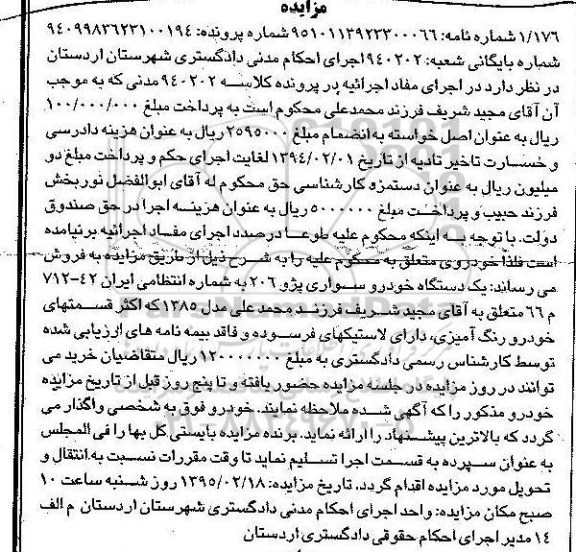 مزایده
۱/۱۷۶ شماره نامه: ۹۵۱۰۱۱۳۹۲۳۳۰۰۰۶۶ شماره پرونده: ۹۴۰۹۹۸۳۶۲۳۱۰۰۱۹۴
شماره بایگانی شعبه: ۹۴۰۲۰۲ اجرای احکام مدنی دادگستری شهرستان اردستان
در نظر دارد در اجرای مفاد اجرائیه بر پرونده کلاسه ۹۴۰۲۰۲ مدنی که به موجب
آن آقای مجید شریف فرزند محمدعلی محکوم است به پرداخت مبلغ ۱۰۰/۰۰۰/۰۰۰
ریال به عنوان اصل خواسته به انضمام مبلغ ۲۰۹۵۰۰۰ ریال به عنوان هزینه دادرسی
و خسارت تاخیر تادیه از تاریخ ۱۳۹۴/۰۲/۰۱ لغایت اجرای حکم و پرداخت مبلغ دو
میلیون ریال به عنوان دستمزد کارشناسی حق محکوم له آقای ابوالفضل نوربخش
فرزند حبیب و پرداخت مبلغ ۵۰۰۰۰۰۰ ریال به عنوان هزینه اجرا در حق صندوق
دولت. با توجه به اینکه محکوم علیه طوعا درصدد اجرای مفاد اجرائیه برنیامده
است فلذا خودروی متعلق به محکوم علیه را به شرح ذیل از طریق مزایده به فروش
می رساند: یک دستگاه خودرو سواری پژو ۲۰۶ به شماره انتظامی ایران ۴۲-۷۱۲
م ۶۶ متعلق به آقای مجید شریف فرزند محمد علی مدل ۱۳۸۵ که اکثر قسمتهای
خودرو رنگ آمیزی، دارای لاستیکهای فرسوده و فاقد بیمه نامه های ارزیابی شده
توسط کارشناس رسمی دادگستری به مبلغ ۱۲۰۰۰۰۰۰۰ ریال متقاضیان خرید می
توانند در روز مزایده در جلسه مزایده حضور یافته و تا پنج روز قبل از تاریخ مزایده
خودرو مذکور را که آگهی شده ملاحظه نمایند. خودرو فوق به شخصی واگذار می
گردد که بالاترین پیشنهاد را ارائه نماید. برنده مزایده بایستی کل بها را فی المجلس
به عنوان سپرده به قسمت اجرا تسلیم نماید تا وقت مقررات نسبت به انتقال و
تحویل مورد مزایده اقدام گردد. تاریخ مزایده: ۱۳۹۵/۰۲/۱۸ روز شنبه ساعت ۱۰
صبح مکان مزایده: واحد اجرای احکام مدنی دادگستری شهرستان اردستان م الف
۱۴ مدیر اجرای احکام حقوقی دادگستری اردستان